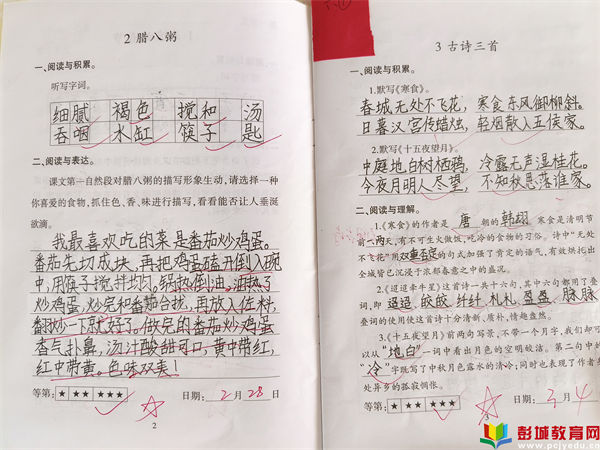 2 腊八粥
一、阅读与积累。
听写字词。
细腻 褐色 搅和 汤
吞咽 水缸 筷子 匙
二、阅读与表达。
课文第一自然段对腊八粥的描写形象生动,请选择一种
你喜爱的食物,抓住色、香、味进行描写,看看能否让人垂涎
欲滴。
我最喜欢吃的菜是番茄炒鸡蛋。
番茄先切成块,再把鸡蛋磕开倒入碗
中,用筷子搅拌均匀,锅热倒油,油热了
炒鸡蛋,炒完和番茄合拢,再放入佐料,
翻炒一下就好了。做完的番茄炒鸡蛋
香气扑鼻,汤汁酸甜可口,黄中带红,
红中带黄。色味双美!
等第: ★ ★★ ★★★ 日期: 2 月 28 日
2
3 古诗三首
一、阅读与积累。
1.默写《寒食》。
春城无处不飞花,寒食东风御柳斜。
日暮汉宫传蜡烛,轻烟散入五侯家。
2.默写《十五夜望月》。
中庭地白树栖鸦,冷露无声湿桂花。
今夜月明人尽望,不知秋思落谁家。
二、阅读与理解。
1.《寒食》的作者是 唐 朝的 韩翃 寒食是清明节
前一两天,有不可生火做饭,吃冷的食物的习俗。诗中“无处
不飞花”用双重否定的句式加强了肯定的语气,有效烘托出
全城皆已沉浸于浓郁春意之中的盛况。
2.《迢迢牵牛星》这首诗一共十六句,其中六句都用了叠
词,即 迢迢 皎皎 纤纤 札札 盈盈 脉脉
叠词的使用使这首诗十分清新、质朴,情趣盎然。
3.《十五夜望月》前两句写景,不带一个月字,我们却可
以从“地白”一词中看出月色的空明皎洁。第二句中的
“冷”字既写了中秋月色露水的清冷;同时也表现了作者
处异乡的孤寂惆怅。
等第: ★ ★★ ★★★ 日期: 3 月 4
3
彭城教育网
www.pcjyedu.cn